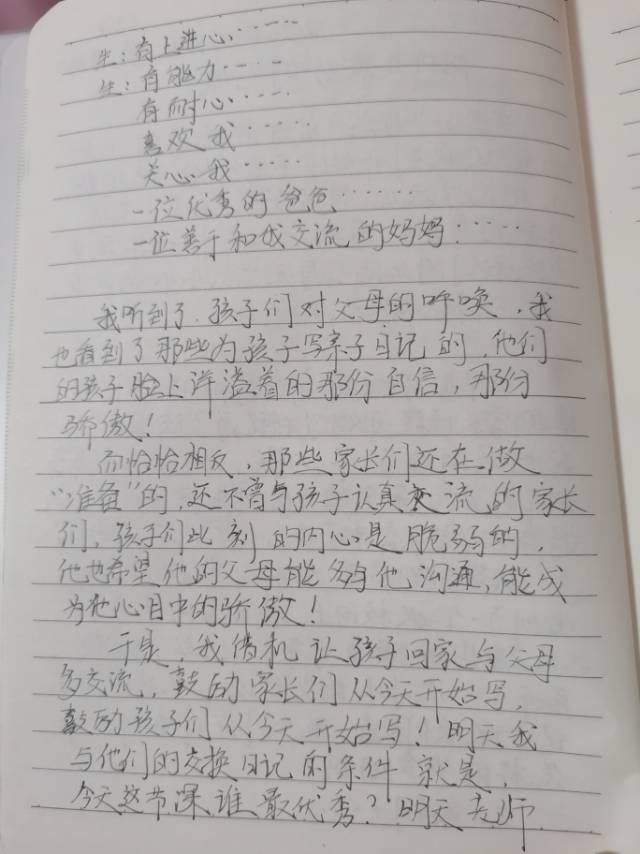 生：有上进心……
生：有能力……
有耐心……
喜欢我……
关心我……
一位优秀的爸爸……
一位善于和我交流的妈妈……
我听到了孩子们对父母的呼唤，我
也看到了那些为孩子写亲子日记的，他们
的孩子脸上洋溢着的那份自信，那份
骄傲！
而恰恰相反，那些家长们还在做
“准备”的，还不曾与孩子认真交流的家长
们，孩子们此刻的内心是脆弱的，
他也希望他的父母能多与他沟通，能成
为他心目中的骄傲！
于是，我借机让孩子回家与父母
多交流，鼓励家长们从今天开始写，
鼓励孩子们从今天开始写！明天我
与他们的交换日记的条件就是，
今天这节课谁最优秀？明天老师